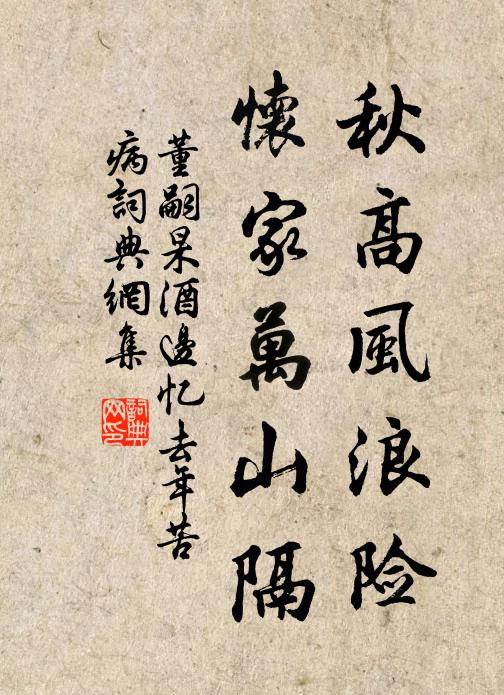 秋高風浪险
懷家萬山隔
董嗣杲酒邊忆去年苦
病詞典網集
詞典
网印